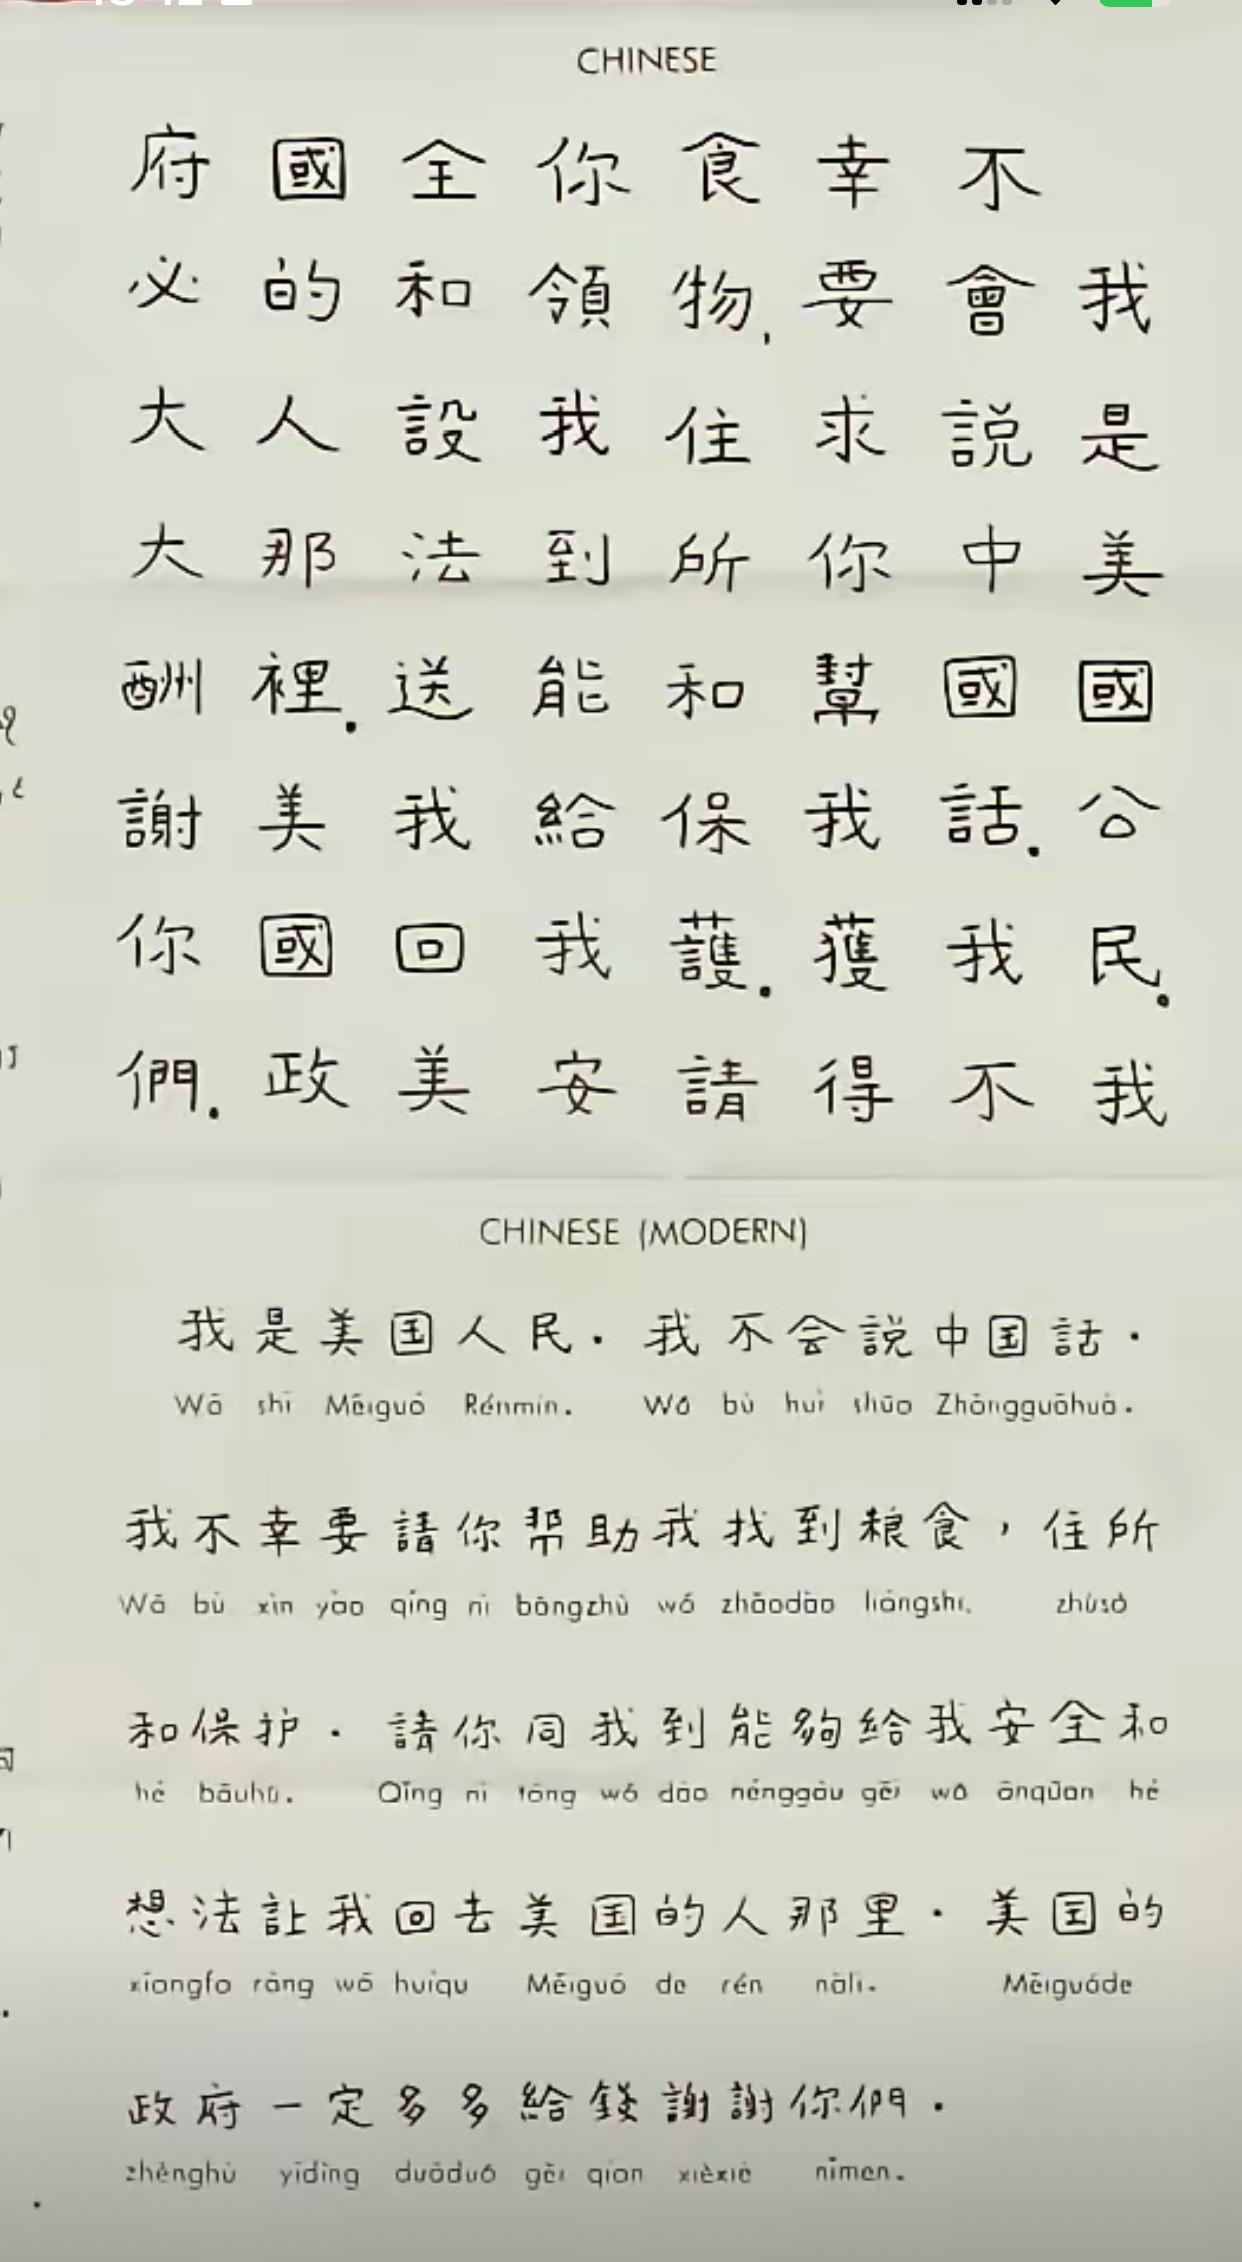 CHINESE
我是美國公民.我
不會説中國話.我不
幸要求你幫我獲得
食物,住所和保護.請
你領我到能給我安
全和設法送我回美
國的人那裡.美國政
府必大大酬謝你們.
CHINESE (MODERN)
我是美国人民. 我不会説中国話.
Wǒ shì Měiguó Rénmín. Wǒ bù huì shūo Zhōngguōhuà.
我不幸要請你帮助我找到粮食,住所
Wǒ bù xìn yào qǐng nǐ bāngzhù wǒ zhǎodào liángshí, zhùsǒ
和保护. 請你同我到能夠給我安全和
hé bǎuhù. Qǐng nǐ tóng wǒ dào nénggòu gěi wǒ ānqüan hé
想法讓我回去美国的人那里. 美国的
xiǎngfǎ ràng wǒ huíqu Měiguó de rén nàli. Měiguóde
政府一定多多給錢謝謝你們.
zhènghǔ yīdìng duōduō gěi qian xièxiè nǐmen.